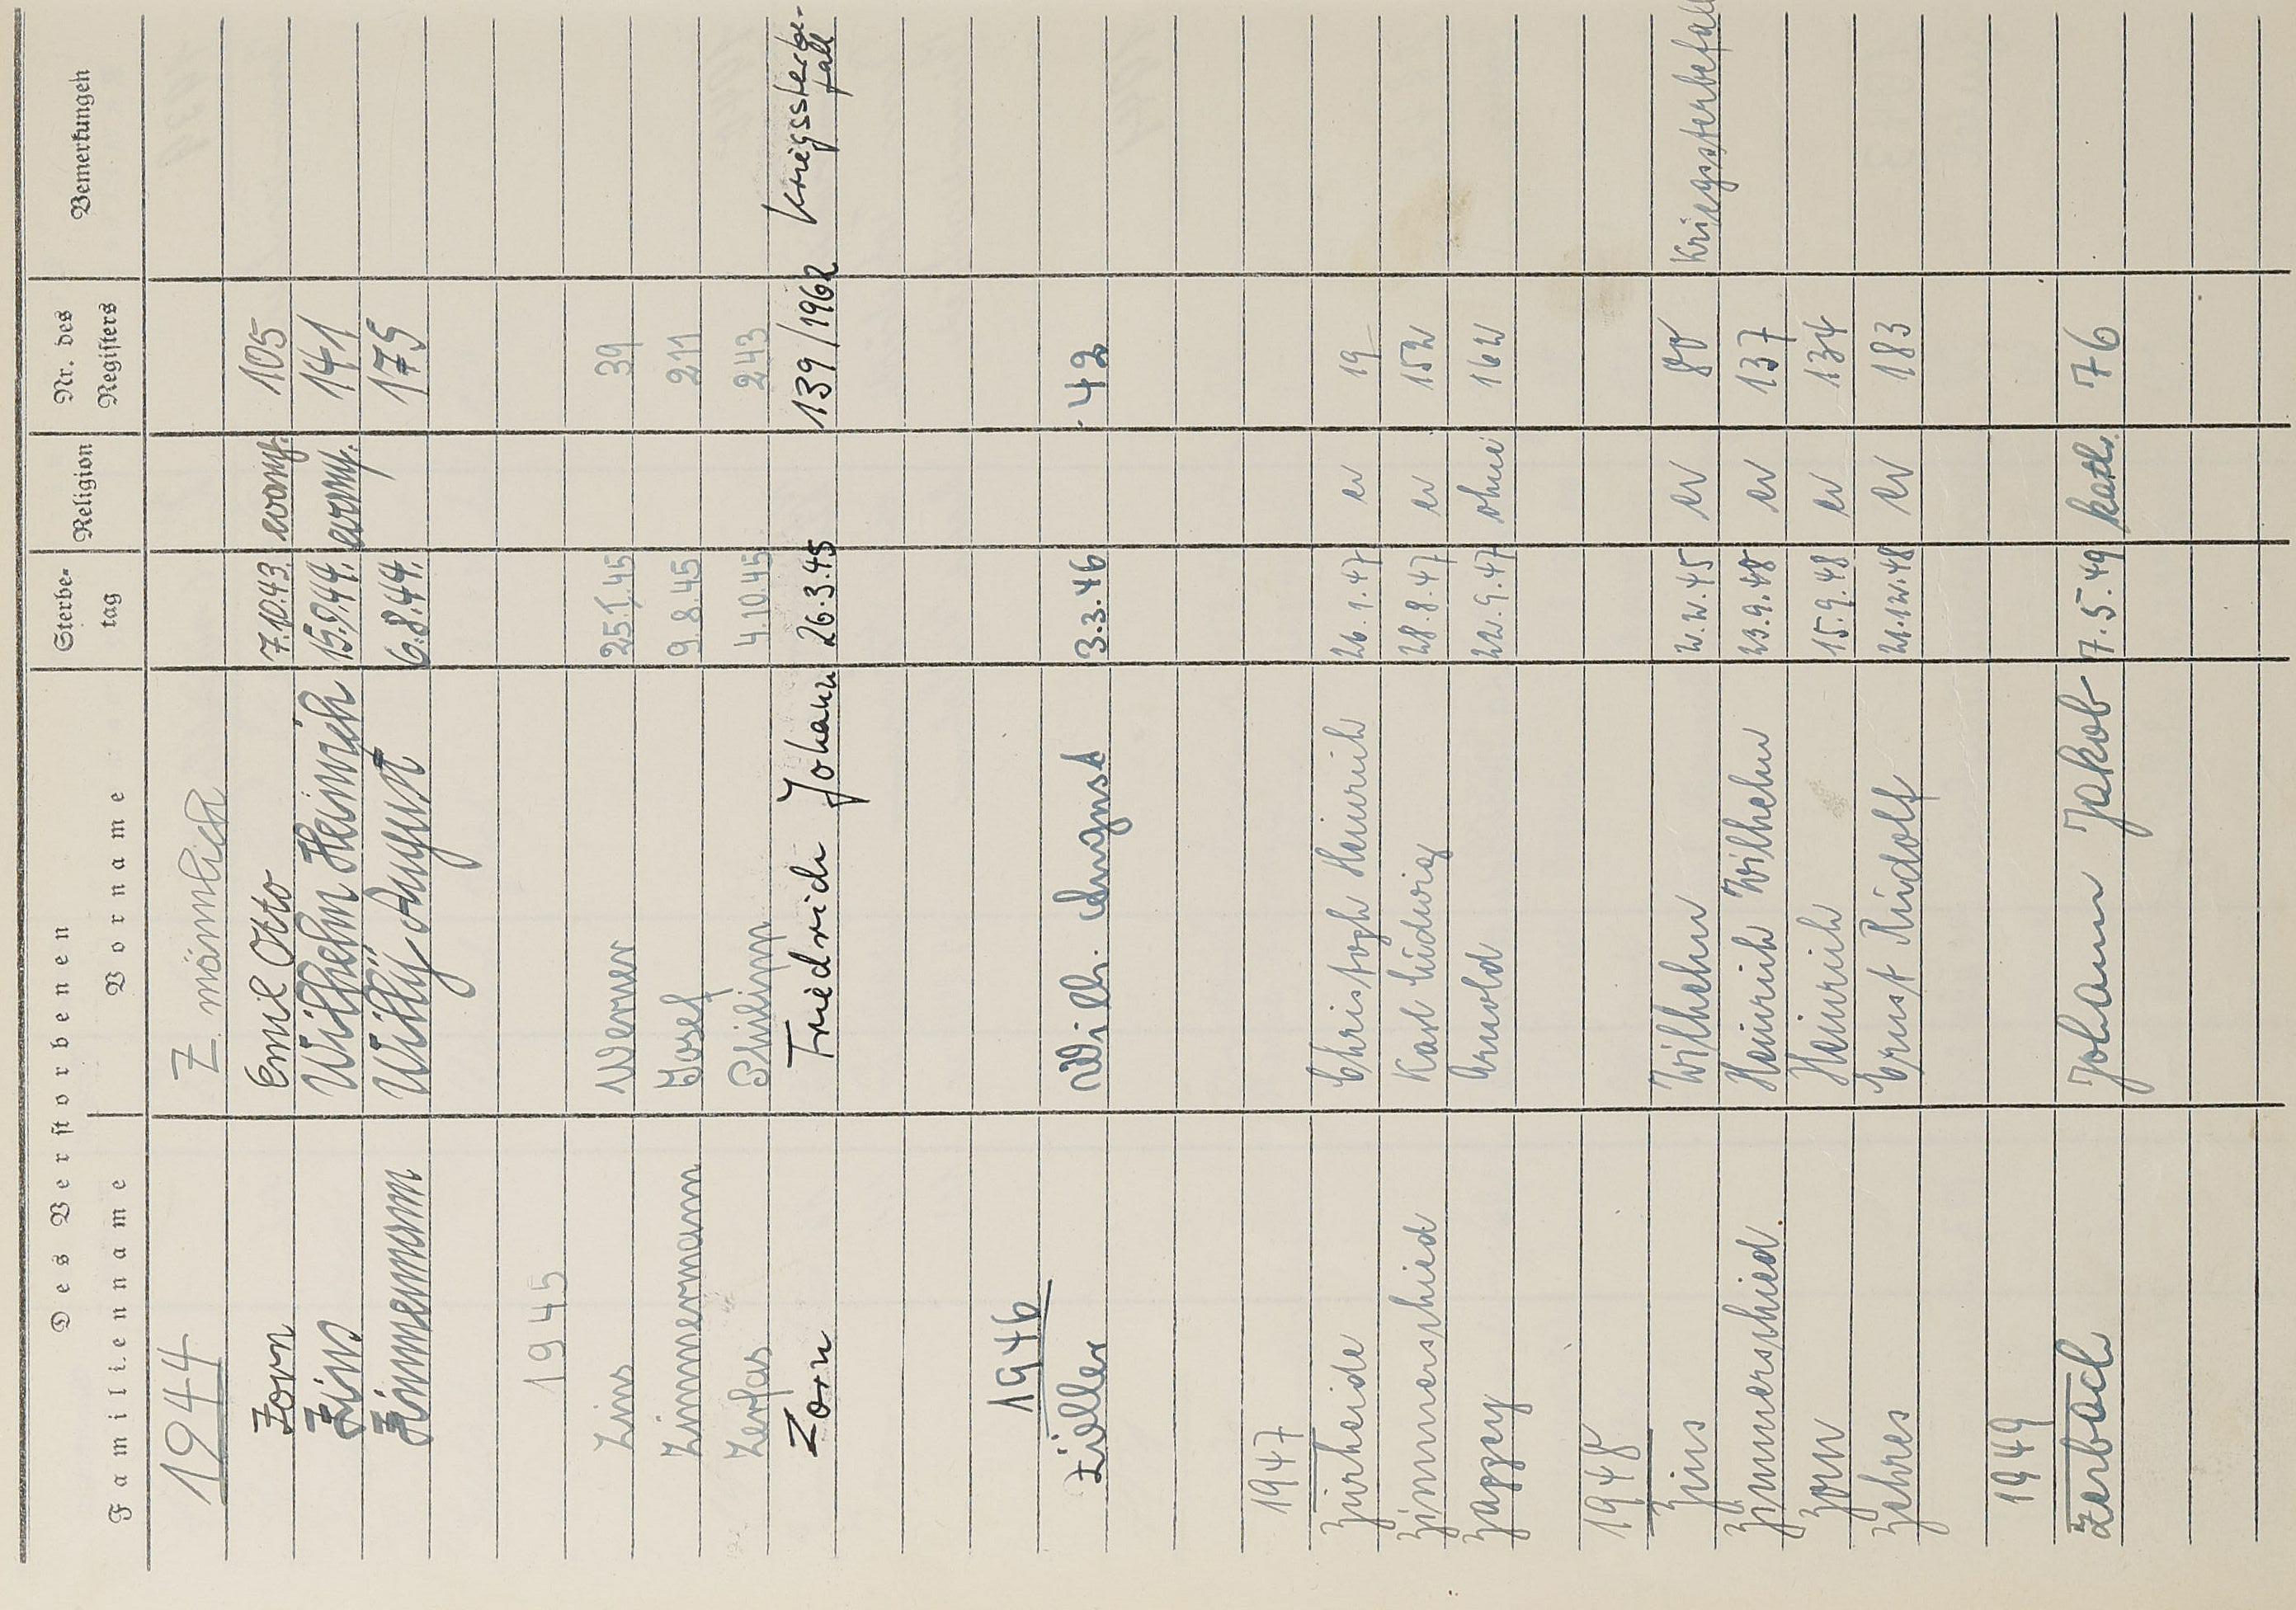 Des Verstorbenen
Familienname Vorname Sterbe-tag Religion Nr. des Registers Bemerkungen
1944 Z. männlich
Zorn Emil Otto 7.10.43. evang. 105
Zins Wilhelm Heinrich 15.7.44. evang. 141
Zimmermann Willy August 6.8.44. 175
1945
Zins Werner 25.1.45 39
Zimmermann Josef 9.8.45 211
Zerfas Philipp 4.10.45 243
Zorn Friedrich Johann 26.3.45 139/1962 Kriegssterbe-fall
1946
Zöller Wilh. August 3.3.46 42
1947
Zurheide Christoph Heinrich 26.1.47 ev 19
Zimmerschied Karl Ludwig 28.8.47 ev 152
Zappey Arnold 22.9.47 ohne 162
1948
Zins Wilhelm 2.2.45 ev 88 Kriegssterbefall
Zimmerschied Heinrich Wilhelm 23.9.48 ev 137
Zorn Heinrich 15.9.48 ev 134
Zehres Ernst Rudolf 21.12.48 ev 183
1949
Zerbach Johann Jakob 7.5.49 kath. 76